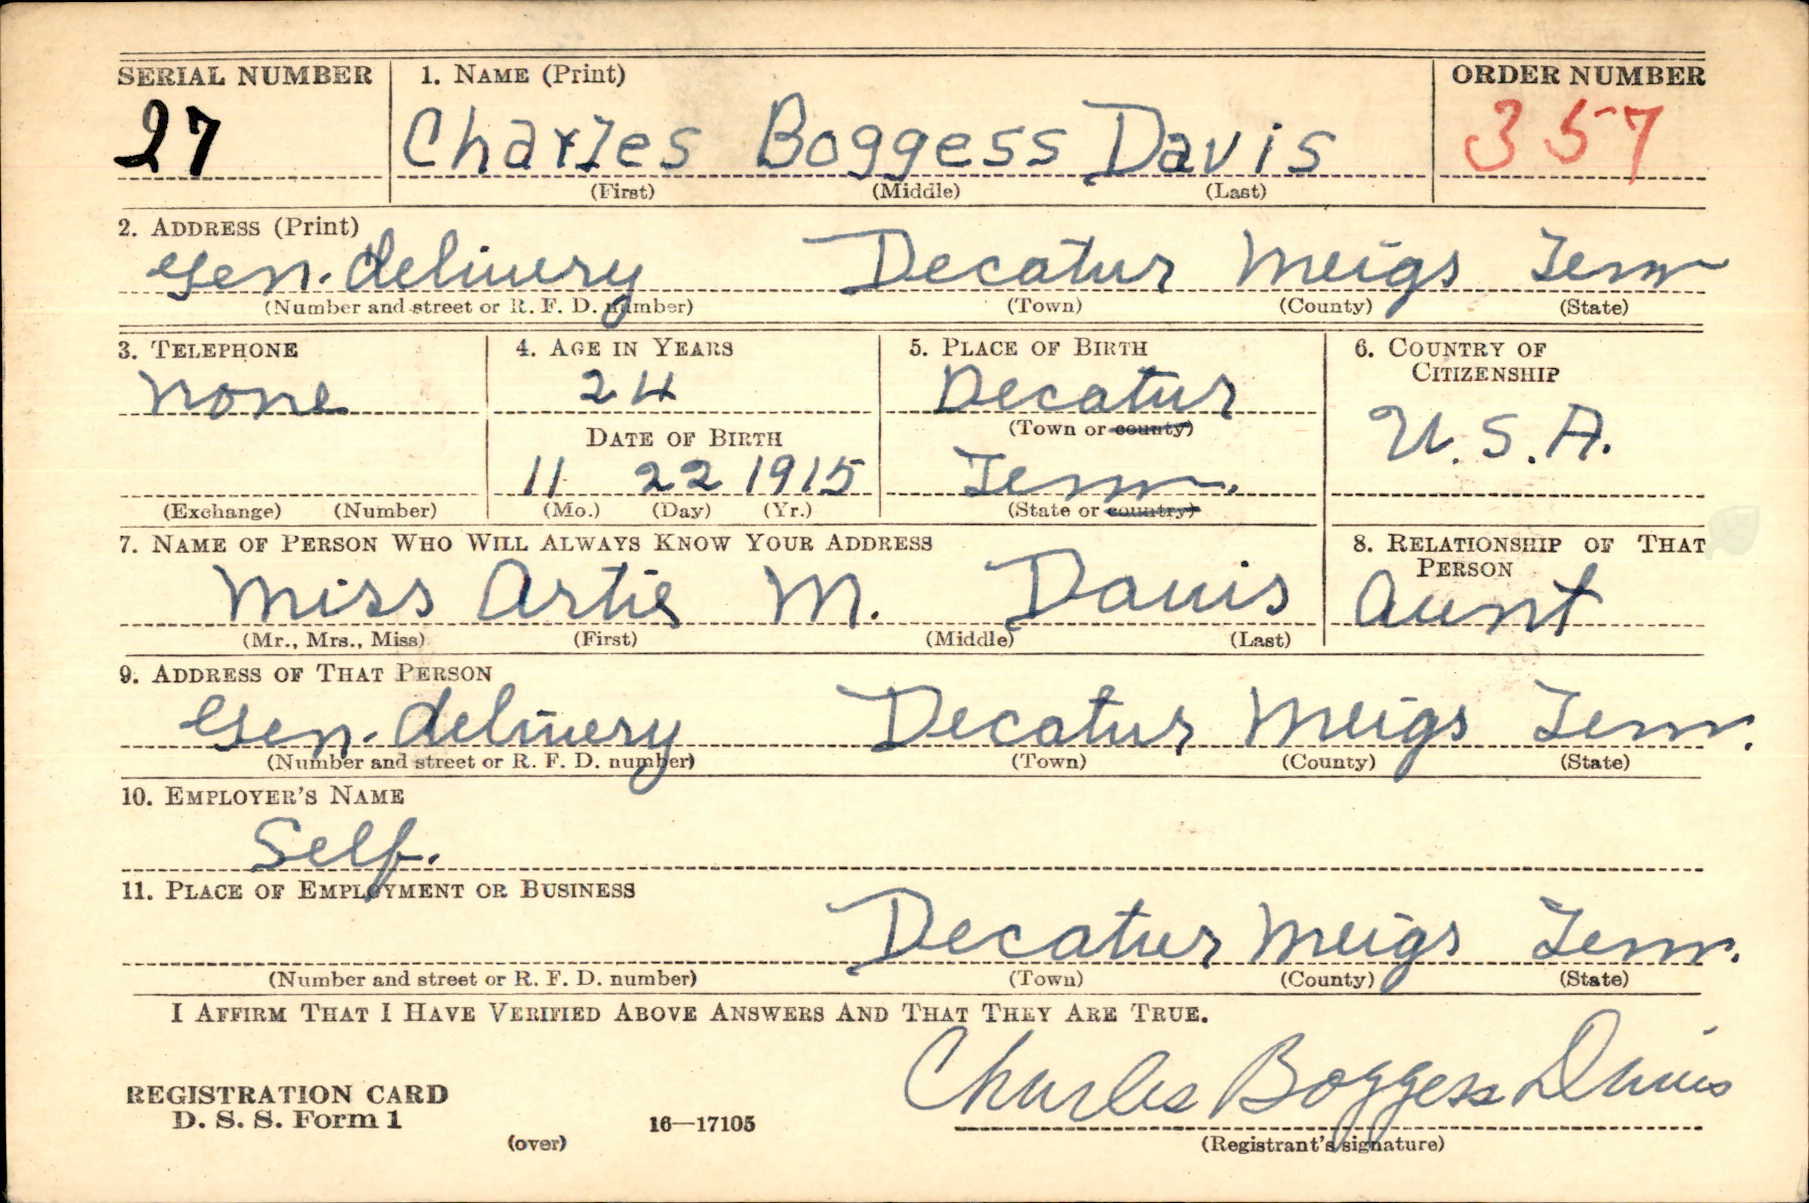 SERIAL NUMBER 1. NAME (Print) ORDER NUMBER
27 Charles Boggess Davis 357
(First) (Middle) (Last)
2. ADDRESS (Print)
Gen. delivery Decatur Meigs Tenn
(Number and street or R. F. D. number) (Town) (County) (State)
3. TELEPHONE 4. AGE IN YEARS 5. PLACE OF BIRTH 6. COUNTRY OF CITIZENSHIP
none 24 Decatur U.S.A.
DATE OF BIRTH (Town or county)
11 22 1915 Tenn.
(Exchange) (Number) (Mo.) (Day) (Yr.) (State or country)
7. NAME OF PERSON WHO WILL ALWAYS KNOW YOUR ADDRESS 8. RELATIONSHIP OF THAT PERSON
Miss Artie M. Davis Aunt
(Mr., Mrs., Miss) (First) (Middle) (Last)
9. ADDRESS OF THAT PERSON
Gen. delivery Decatur Meigs Tenn.
(Number and street or R. F. D. number) (Town) (County) (State)
10. EMPLOYER'S NAME
Self.
11. PLACE OF EMPLOYMENT OR BUSINESS
Decatur Meigs Tenn.
(Number and street or R. F. D. number) (Town) (County) (State)
I AFFIRM THAT I HAVE VERIFIED ABOVE ANSWERS AND THAT THEY ARE TRUE.
Charles Boggess Davis
REGISTRATION CARD
D. S. S. Form 1 16—17105
(over) (Registrant's signature)